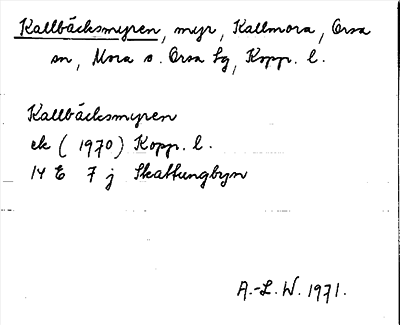 Kallbäcksmyren, myr, Kallmora, Orsa
sn, Mora o. Orsa tg, Kopp. l.
Kallbäcksmyren
ek (1970) Kopp. l.
14 E 7 j Skattungbyn
A.-L. W. 1971.